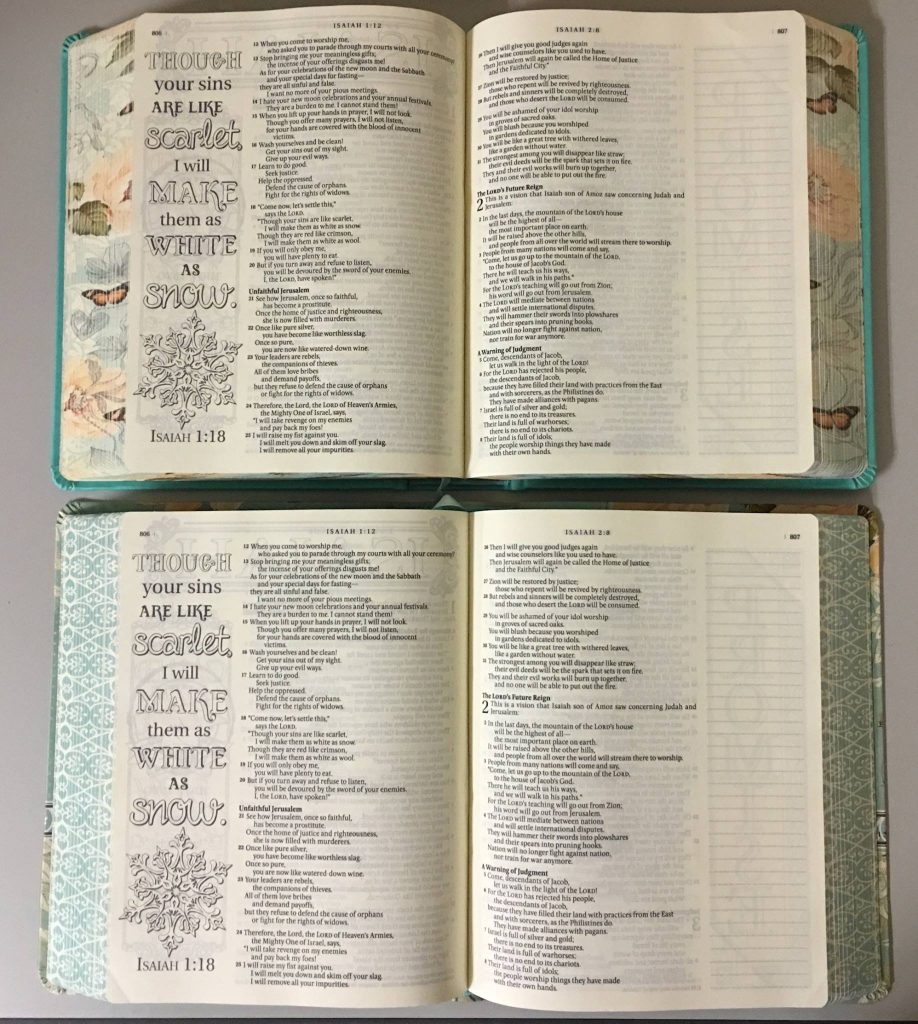 806
ISAIAH 1:12
THOUGH
your sins
ARE LIKE
Scarlet,
I will
MAKE
them as
WHITE
AS
SNOW.
ISAIAH 1:18
12 When you come to worship me,
who asked you to parade through my courts with all your ceremony?
13 Stop bringing me your meaningless gifts;
the incense of your offerings disgusts me!
As for your celebrations of the new moon and the Sabbath
and your special days for fasting—
they are all sinful and false.
I want no more of your pious meetings.
14 I hate your new moon celebrations and your annual festivals.
They are a burden to me. I cannot stand them!
15 When you lift up your hands in prayer, I will not look.
Though you offer many prayers, I will not listen,
for your hands are covered with the blood of innocent
victims.
16 Wash yourselves and be clean!
Get your sins out of my sight.
Give up your evil ways.
17 Learn to do good.
Seek justice.
Help the oppressed.
Defend the cause of orphans.
Fight for the rights of widows.
18 "Come now, let's settle this,"
says the LORD.
"Though your sins are like scarlet,
I will make them as white as snow.
Though they are red like crimson,
I will make them as white as wool.
19 If you will only obey me,
you will have plenty to eat.
20 But if you turn away and refuse to listen,
you will be devoured by the sword of your enemies.
I, the LORD, have spoken!"
Unfaithful Jerusalem
21 See how Jerusalem, once so faithful,
has become a prostitute.
Once the home of justice and righteousness,
she is now filled with murderers.
22 Once like pure silver,
you have become like worthless slag.
Once so pure,
you are now like watered-down wine.
23 Your leaders are rebels,
the companions of thieves.
All of them love bribes
and demand payoffs,
but they refuse to defend the cause of orphans
or fight for the rights of widows.
24 Therefore, the Lord, the LORD of Heaven's Armies,
the Mighty One of Israel, says,
"I will take revenge on my enemies
and pay back my foes!
25 I will raise my fist against you.
I will melt you down and skim off your slag.
I will remove all your impurities.
ISAIAH 2:8
807
26 Then I will give you good judges again
and wise counselors like you used to have.
Then Jerusalem will again be called the Home of Justice
and the Faithful City."
27 Zion will be restored by justice;
those who repent will be revived by righteousness.
28 But rebels and sinners will be completely destroyed,
and those who desert the LORD will be consumed.
29 You will be ashamed of your idol worship
in groves of sacred oaks.
You will blush because you worshiped
in gardens dedicated to idols.
30 You will be like a great tree with withered leaves,
like a garden without water.
31 The strongest among you will disappear like straw;
their evil deeds will be the spark that sets it on fire.
They and their evil works will burn up together,
and no one will be able to put out the fire.
The LORD's Future Reign
2 This is a vision that Isaiah son of Amoz saw concerning Judah and
Jerusalem:
2 In the last days, the mountain of the LORD's house
will be the highest of all—
the most important place on earth.
It will be raised above the other hills,
and people from all over the world will stream there to worship.
3 People from many nations will come and say,
"Come, let us go up to the mountain of the LORD,
to the house of Jacob's God.
There he will teach us his ways,
and we will walk in his paths."
For the LORD's teaching will go out from Zion;
his word will go out from Jerusalem.
4 The LORD will mediate between nations
and will settle international disputes.
They will hammer their swords into plowshares
and their spears into pruning hooks.
Nation will no longer fight against nation,
nor train for war anymore.
A Warning of Judgment
5 Come, descendants of Jacob,
let us walk in the light of the LORD!
6 For the LORD has rejected his people,
the descendants of Jacob,
because they have filled their land with practices from the East
and with sorcerers, as the Philistines do.
They have made alliances with pagans.
7 Israel is full of silver and gold;
there is no end to its treasures.
Their land is full of warhorses;
there is no end to its chariots.
8 Their land is full of idols;
the people worship things they have made
with their own hands.
806
ISAIAH 1:12
THOUGH
your sins
ARE LIKE
Scarlet,
I will
MAKE
them as
WHITE
AS
SNOW.
ISAIAH 1:18
12 When you come to worship me,
who asked you to parade through my courts with all your ceremony?
13 Stop bringing me your meaningless gifts;
the incense of your offerings disgusts me!
As for your celebrations of the new moon and the Sabbath
and your special days for fasting—
they are all sinful and false.
I want no more of your pious meetings.
14 I hate your new moon celebrations and your annual festivals.
They are a burden to me. I cannot stand them!
15 When you lift up your hands in prayer, I will not look.
Though you offer many prayers, I will not listen,
for your hands are covered with the blood of innocent
victims.
16 Wash yourselves and be clean!
Get your sins out of my sight.
Give up your evil ways.
17 Learn to do good.
Seek justice.
Help the oppressed.
Defend the cause of orphans.
Fight for the rights of widows.
18 "Come now, let's settle this,"
says the LORD.
"Though your sins are like scarlet,
I will make them as white as snow.
Though they are red like crimson,
I will make them as white as wool.
19 If you will only obey me,
you will have plenty to eat.
20 But if you turn away and refuse to listen,
you will be devoured by the sword of your enemies.
I, the LORD, have spoken!"
Unfaithful Jerusalem
21 See how Jerusalem, once so faithful,
has become a prostitute.
Once the home of justice and righteousness,
she is now filled with murderers.
22 Once like pure silver,
you have become like worthless slag.
Once so pure,
you are now like watered-down wine.
23 Your leaders are rebels,
the companions of thieves.
All of them love bribes
and demand payoffs,
but they refuse to defend the cause of orphans
or fight for the rights of widows.
24 Therefore, the Lord, the LORD of Heaven's Armies,
the Mighty One of Israel, says,
"I will take revenge on my enemies
and pay back my foes!
25 I will raise my fist against you.
I will melt you down and skim off your slag.
I will remove all your impurities.
ISAIAH 2:8
807
26 Then I will give you good judges again
and wise counselors like you used to have.
Then Jerusalem will again be called the Home of Justice
and the Faithful City."
27 Zion will be restored by justice;
those who repent will be revived by righteousness.
28 But rebels and sinners will be completely destroyed,
and those who desert the LORD will be consumed.
29 You will be ashamed of your idol worship
in groves of sacred oaks.
You will blush because you worshiped
in gardens dedicated to idols.
30 You will be like a great tree with withered leaves,
like a garden without water.
31 The strongest among you will disappear like straw;
their evil deeds will be the spark that sets it on fire.
They and their evil works will burn up together,
and no one will be able to put out the fire.
The LORD's Future Reign
2 This is a vision that Isaiah son of Amoz saw concerning Judah and
Jerusalem:
2 In the last days, the mountain of the LORD's house
will be the highest of all—
the most important place on earth.
It will be raised above the other hills,
and people from all over the world will stream there to worship.
3 People from many nations will come and say,
"Come, let us go up to the mountain of the LORD,
to the house of Jacob's God.
There he will teach us his ways,
and we will walk in his paths."
For the LORD's teaching will go out from Zion;
his word will go out from Jerusalem.
4 The LORD will mediate between nations
and will settle international disputes.
They will hammer their swords into plowshares
and their spears into pruning hooks.
Nation will no longer fight against nation,
nor train for war anymore.
A Warning of Judgment
5 Come, descendants of Jacob,
let us walk in the light of the LORD!
6 For the LORD has rejected his people,
the descendants of Jacob,
because they have filled their land with practices from the East
and with sorcerers, as the Philistines do.
They have made alliances with pagans.
7 Israel is full of silver and gold;
there is no end to its treasures.
Their land is full of warhorses;
there is no end to its chariots.
8 Their land is full of idols;
the people worship things they have made
with their own hands.